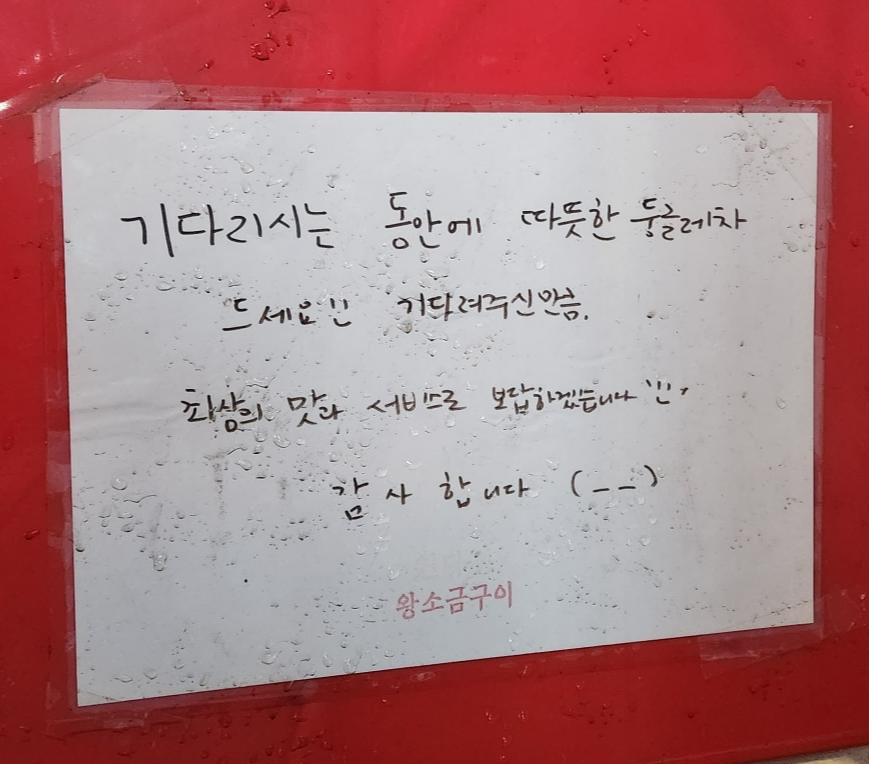 기다리시는 동안에 따뜻한 둥글레차
드세요!! 기다려주신만큼.
최상의 맛과 서비스로 보답하겠습니다!!!.
감사 합니다 (__)
왕소금구이